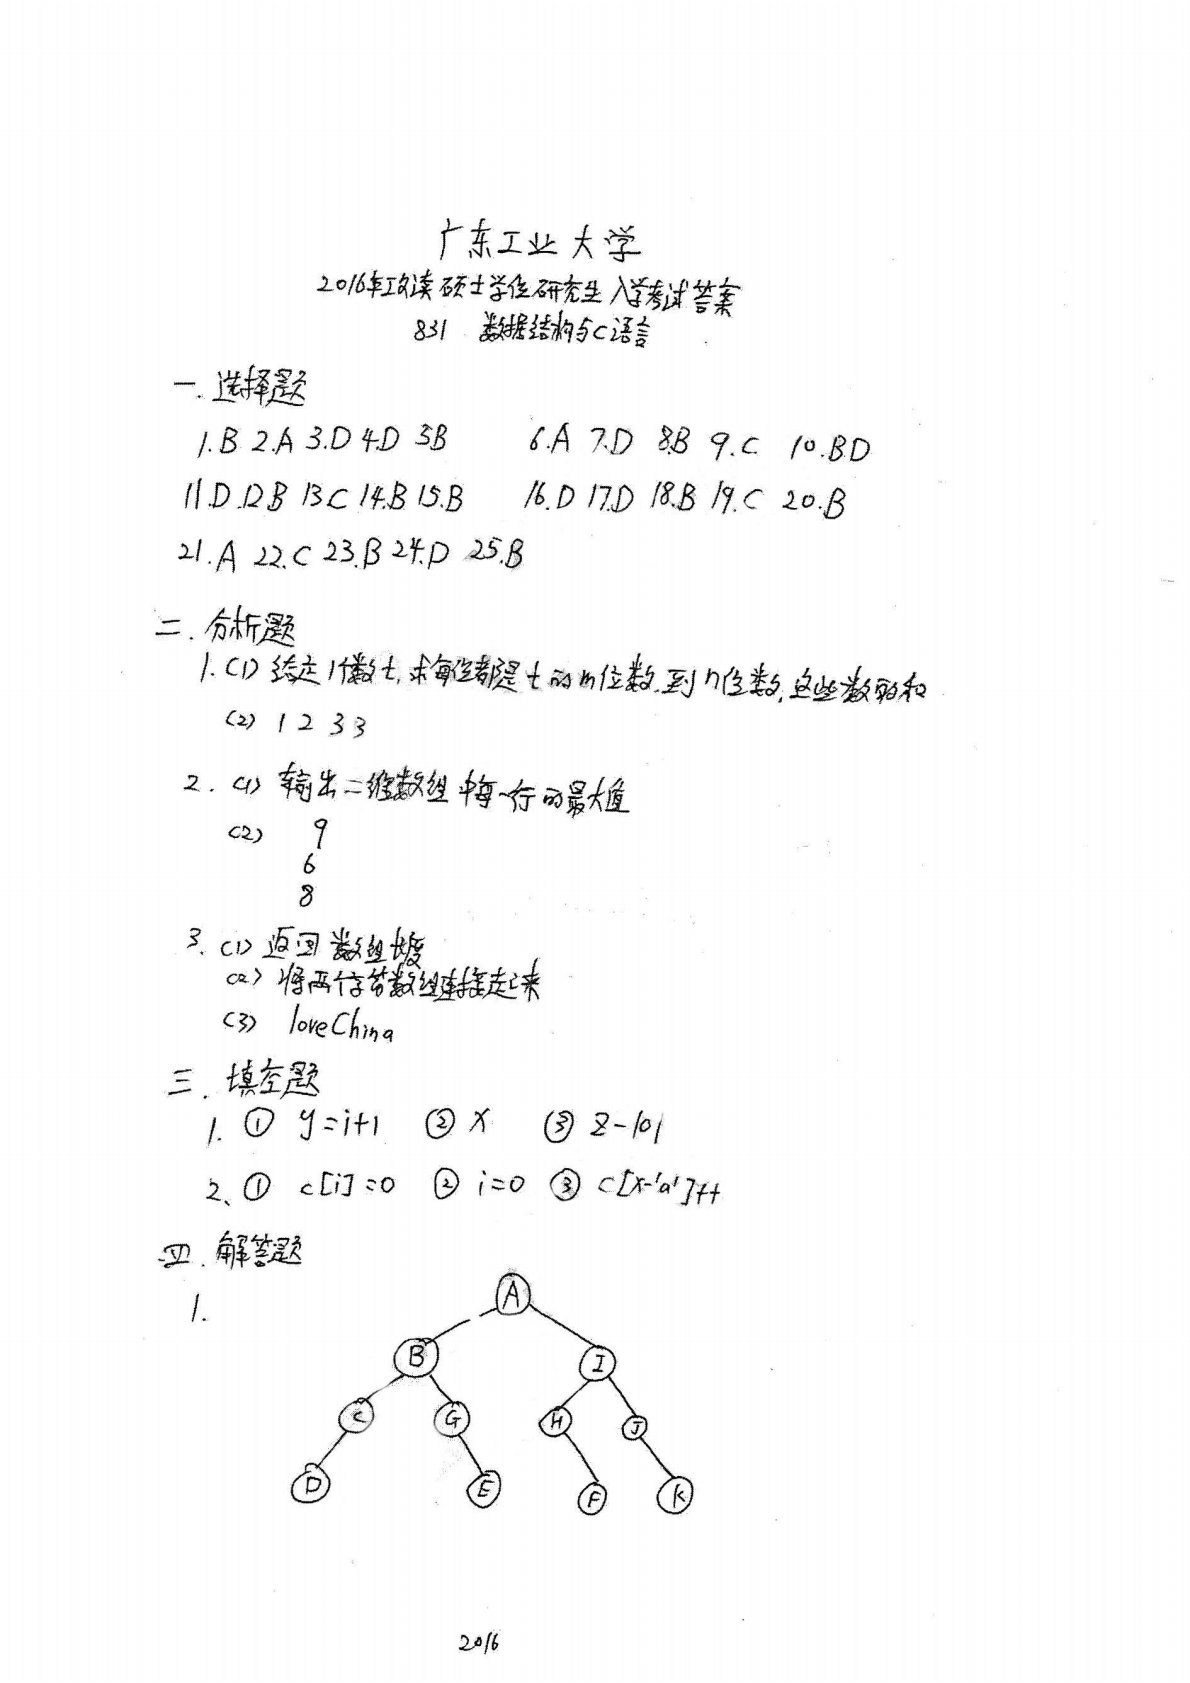 广东工业大学
2016年攻读硕士学位研究生入学考试答案
831 数据结构与C语言
一.选择题
1.B 2.A 3.D 4.D 5B 6.A 7.D 8.B 9.C 10.BD
11.D 12B 13C 14.B 15.B 16.D 17.D 18.B 19.C 20.B
21.A 22.C 23.B 24.D 25.B
二.分析题
1.(1) 给定1个数t,求每位都是t的m位数到n位数,这些数的和
(2) 1 2 3 3
2.(1) 输出二维数组中每一行的最大值
(2) 9
6
8
3.(1) 返回数组长度
(2) 将两个字符数组连接起来
(3) loveChina
三.填空题
1.① y=i+1 ② x ③ z-101
2、① c[i]=0 ② i=0 ③ c[x-'a']++
四.解答题
1.
A
B I
C G H J
D E F K
2016